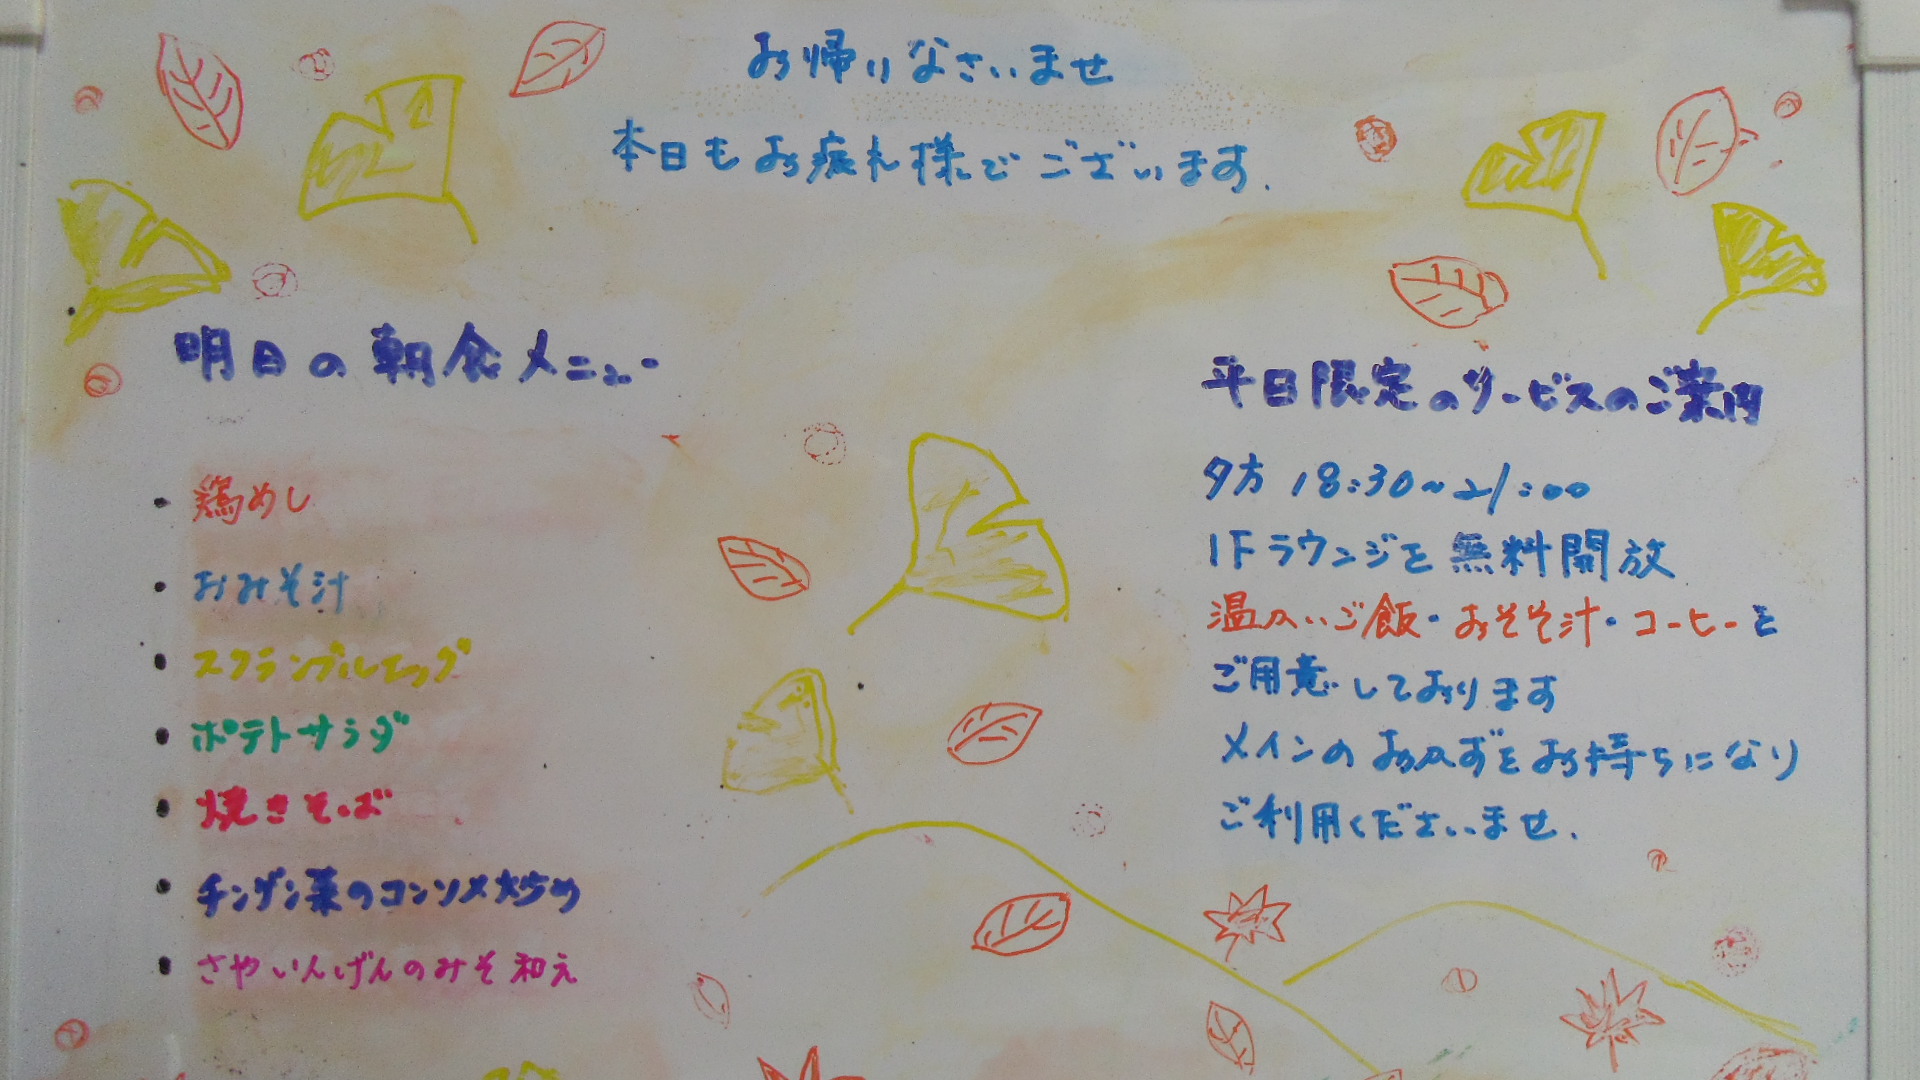 お帰りなさいませ
本日もお疲れ様でございます.
明日の朝食メニュー
・鶏めし
・おみそ汁
・スクランブルエッグ
・ポテトサラダ
・焼きそば
・チンゲン菜のコンソメ炒め
・さやいんげんのみそ和え
平日限定のサービスのご案内
夕方 18:30~21:00
1Fラウンジを無料開放
温かいご飯・おそそ汁・コーヒーを
ご用意しております
メインのおかずをお持ちになり
ご利用くださいませ.